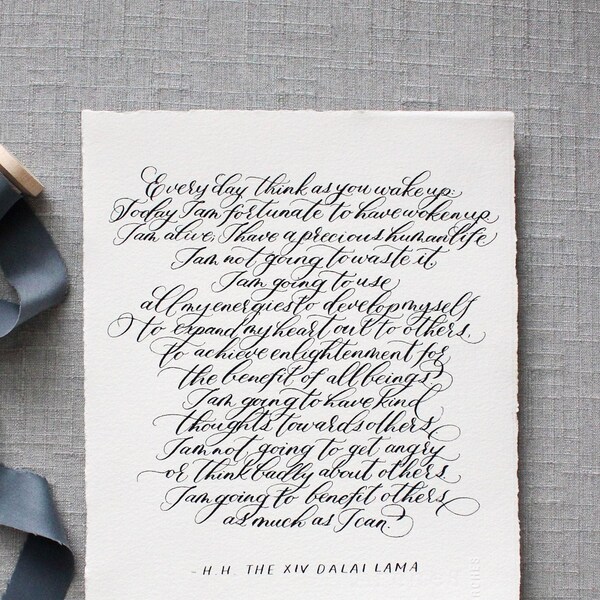 Every day think as you wake up:
Today I am fortunate to have woken up
I am alive, I have a precious human life
I am not going to waste it.
I am going to use
all my energies to develop myself
to expand my heart out to others,
to achieve enlightenment for
the benefit of all beings?
I am going to have kind
thoughts towards others
I am not going to get angry
or think badly about others.
I am going to benefit others
as much as I can?
- H.H. THE XIV DALAI LAMA